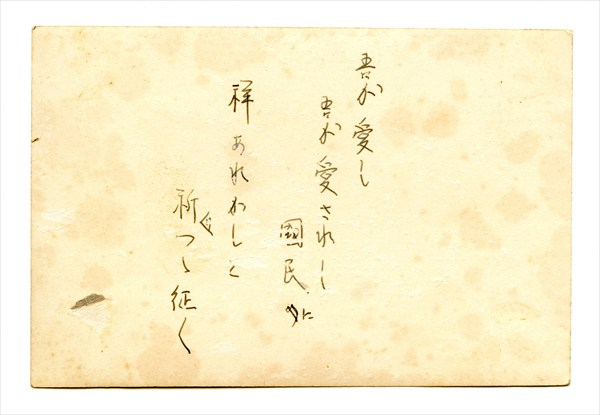 吾が愛し
吾が愛されし
國民に
祥あれかしと
祈りつゝ征く